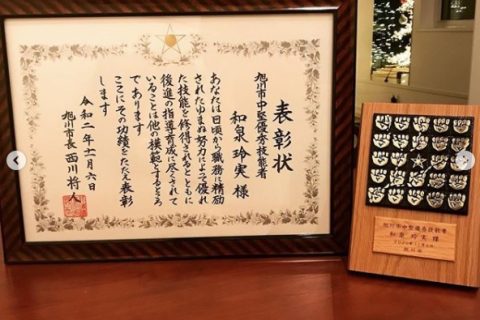 表彰状
旭川市中堅優秀技能者
和泉 玲実 様
あなたは日頃から職務に精励
されたゆまぬ努力によって優れ
た技能を修得されるとともに
後進の指導育成に尽くされて
いることは他の模範とするところ
であります
ここにその功績をたたえ表彰
します
令和二年十一月六日
旭川市長 西川将人
旭川市中堅優秀技能者
和泉 玲実 様
2020年11月6日
旭川市